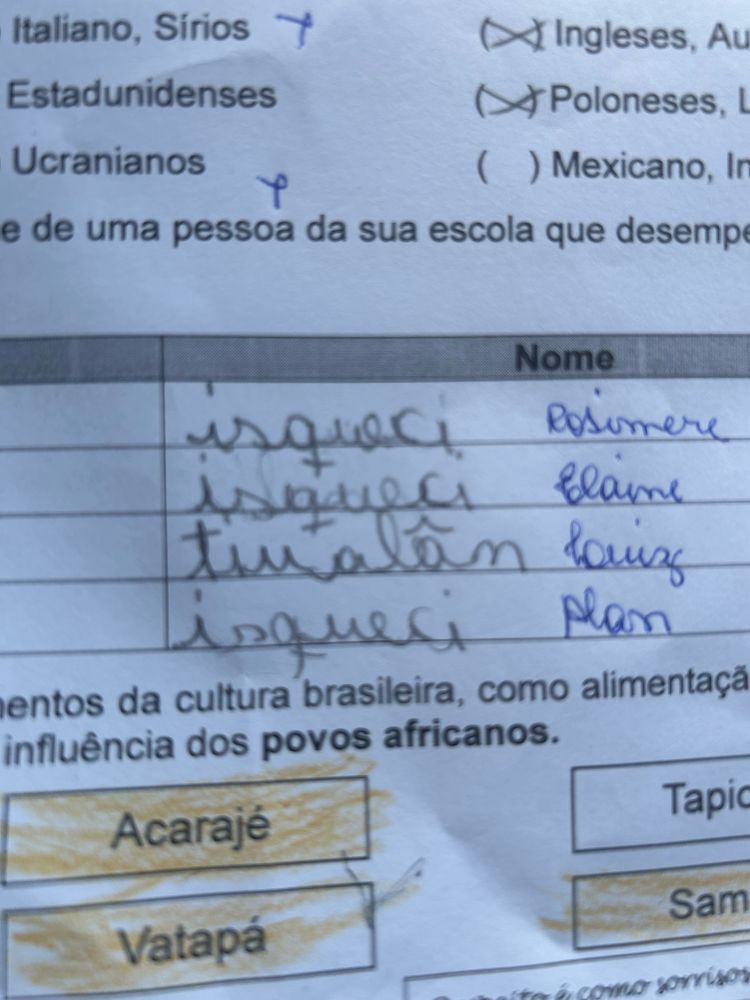 Italiano, Sírios
(X) Ingleses, Au
Estadunidenses
(X) Poloneses, L
Ucranianos
( ) Mexicano, In
e de uma pessoa da sua escola que desempe
Nome
isqueci Rosimere
isqueci Elaine
Luiz
isqueci Alan
mentos da cultura brasileira, como alimentaçã
influência dos povos africanos.
Acarajé
Tapio
Vatapá
Sam
é como sorrisos